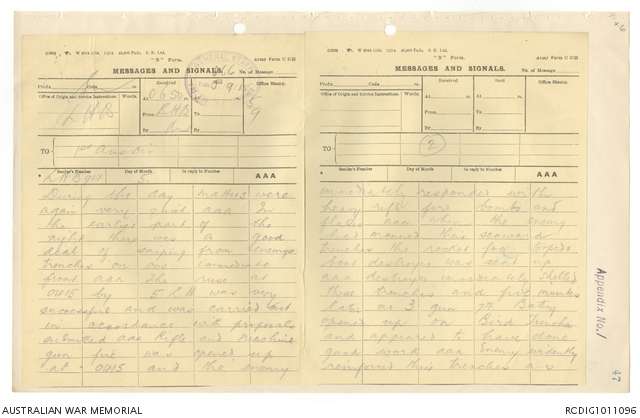 "B" Form.
Army Form C 2121
MESSAGES AND SIGNALS.
No. of Message
Prefix Code
Received
Office Stamp.
Office of Origin and Service Instructions. Words.
At
From
By
TO 1st
Sender's Number Day of Month In reply to Number AAA
5.
During the day matters were
again very quiet aaa In
the earlier part of the
night there was a good
deal of sniping from enemys
trenches on our immediate
front aaa The ruse at
0415 by 5 L H was very
successful and was carried out
in accordance with proposals
submitted aaa Rifle and machine
gun fire was opened up
at 0415 and the enemy
"B" Form.
Army Form C 2121
MESSAGES AND SIGNALS.
No. of Message
Prefix Code
Received
Sent
Office Stamp.
Office of Origin and Service Instructions. Words.
At
From
By
TO 2
Sender's Number Day of Month In reply to Number AAA
immediately responded with
heavy rifle fire bombs and
flares aaa when the enemy
had manned their seaward
trenches the rocket for torpedo
boat destroyer was sent up
aaa destroyer immediately shelled
these trenches and five minutes
later no 3 gun 7th Battery
opened up on Bird Trenches
and appeared to have done
good work aaa Enemy evidently
reinforced their trenches as
Appendix No. 1
47
AUSTRALIAN WAR MEMORIAL
RCDIG1011096